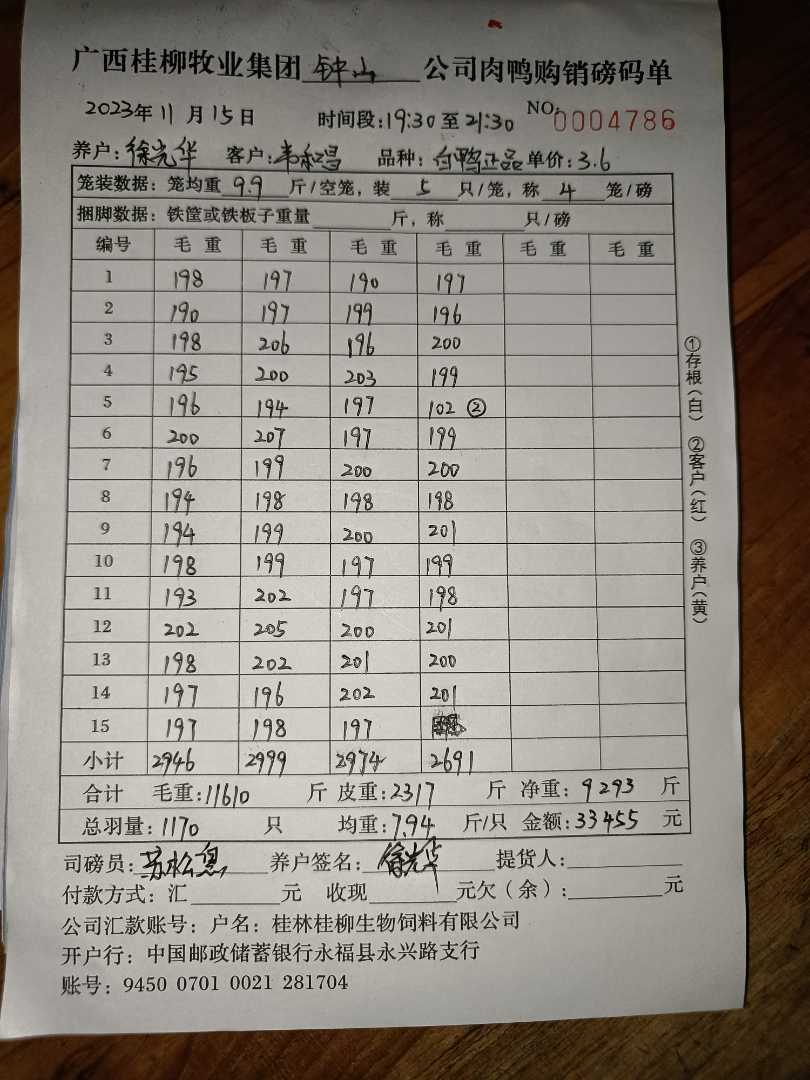 广西桂柳牧业集团 钟山 公司肉鸭购销磅码单
2023年 11 月 15 日 时间段:19:30 至 21:30 NO: 0004786
养户: 徐光华 客户: 韦 昌 品种: 白鸭正品 单价: 3.6
笼装数据: 笼均重 9.9 斤/空笼, 装 5 只/笼, 称 4 笼/磅
捆脚数据: 铁筐或铁板子重量 斤, 称 只/磅
编号 毛 重 毛 重 毛 重 毛 重 毛 重 毛 重
1 198 197 190 197
2 190 197 199 196
3 198 206 196 200
4 195 200 203 199
5 196 194 197 102 ②
6 200 207 197 199
7 196 199 200 200
8 194 198 198 198
9 194 199 200 201
10 198 199 197 199
11 193 202 197 198
12 202 205 200 201
13 198 202 201 200
14 197 196 202 201
15 197 198 197
小计 2946 2999 2974 2691
合计 毛重: 11610 斤 皮重: 2317 斤 净重: 9293 斤
总羽量: 1170 只 均重: 7.94 斤/只 金额: 33455 元
司磅员: 苏松 养户签名: 徐光华 提货人:
付款方式: 汇 元 收现 元欠（余）: 元
公司汇款账号: 户名: 桂林桂柳生物饲料有限公司
开户行: 中国邮政储蓄银行永福县永兴路支行
账号: 9450 0701 0021 281704
①存根（白） ②客户（红） ③养户（黄）